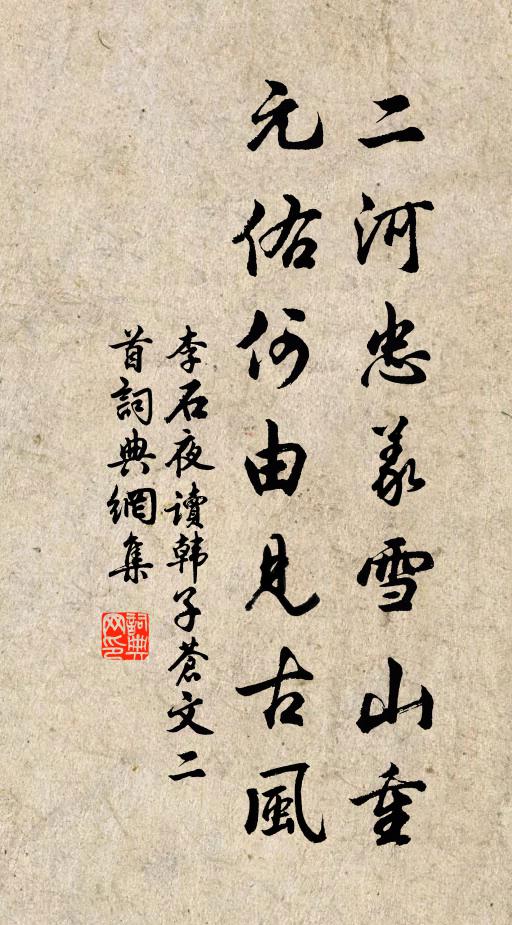 二河忠義雪山重
元佑何由見古風
李石夜讀韩子蒼文二
首詞典網集
詞典
网印